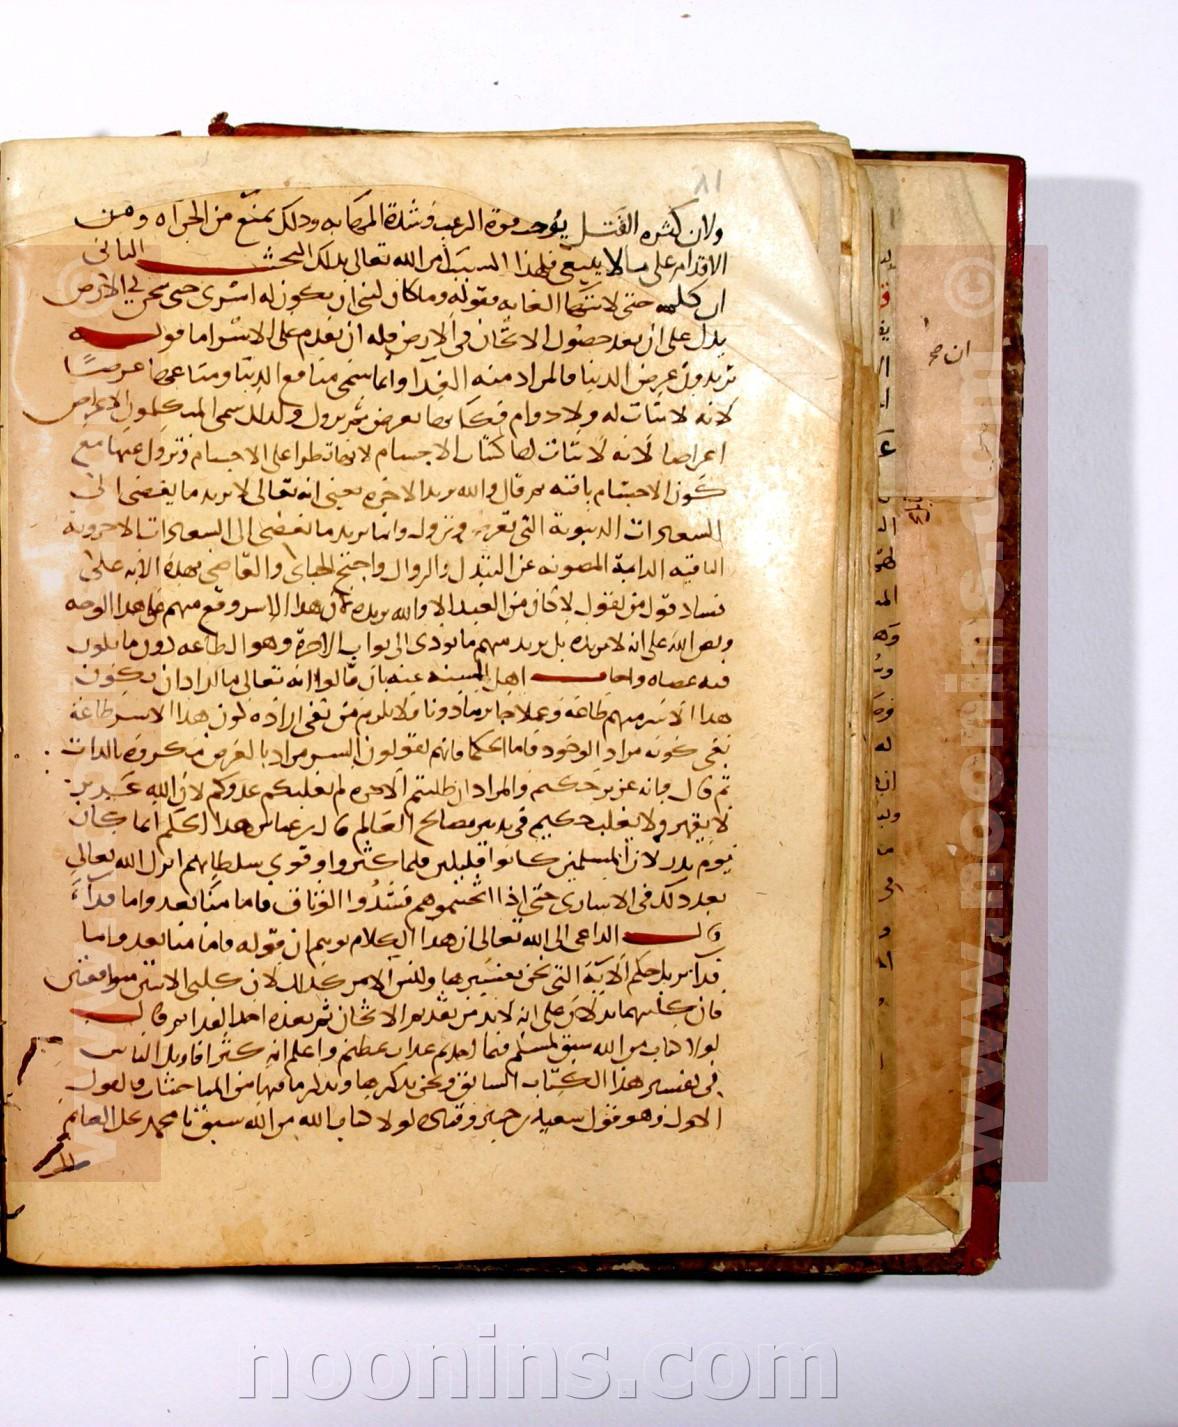 ٨١
ولان كثره القتل يوجب قوة الرعب وشدة المهابه وذلك يمنع من الجراه ومن
الاقدام على ما لا ينبغى فلهذا السبب امر الله تعالى بذلك البحث الثانى
ان كلمه حتى لانتها الغايه فقوله وما كان لنبى ان يكون له اسرى حتى يثخن في الارض
يدل على ان بعد حصول الاثخان فى الارض فله ان يقدم على الاسر اما قوله
تريدون عرض الدنيا فالمراد منه الفدا وانما سمى منافع الدنيا ومتاعها عرضا
لانه لا ثبات له ولا دوام فكانما يعرض ثم يزول ولذلك سمى المتكلمون الاعراض
اعراضا لانه لا ثبات لها كثبات الاجسام لانها تطرا على الاجسام وتزول عنها مع
كون الاجسام باقيه ثم قال والله يريد الاخره يعنى انه تعالى لا يريد ما يفضى الى
السعادات الدنيوية التى تعرض وتزول وانما يريد ما يفضى الى السعادات الاخروية
الباقيه الدايمة المصونه عن التبدل والزوال واحتج الجباى والقاضى بهذه الايه على
فساد قول من يقول لا كائن من العبد الا والله يريده لان هذا الاسر وقع منهم على هذا الوجه
ونص الله على انه لا يريده بل يريد منهم ما يودى الى ثواب الاخرة وهو الطاعه دون ما يكون
فيه عصيان واجاب اهل السنه عنه بان قالوا انه تعالى ما اراد ان يكون
هذا الاسر منهم طاعة وعملا جايزا ماذونا ولا يلزم من نفى اراده كون هذا الاسر طاعة
نفى كونه مراد الوجود فاما الحكما فانهم يقولون الشى مراد بالعرض مكروه بالذات
ثم قال والله عزيز حكيم والمراد ان طلبتم الاخره لم يغلبكم عدوكم لان الله عزيز
لا يقهر ولا يغلب حكيم فى تدبير مصالح العالم قال ابن عباس هذا الحكم انما كان
يوم بدر لان المسلمين كانوا قليلين فلما كثروا وقوى سلطانهم انزل الله تعالى
بعد ذلك فى الاسارى حتى اذا اثخنتموهم فشدوا الوثاق فاما منا بعد واما فداء
قال الداعى الى الله تعالى ان هذا الكلام يوهم ان قوله فاما منا بعد واما
فدا يزيل حكم الاية التى نحن بتفسيرها وليس الامر كذلك لان كلتى الايتين متوافقتين
فان كليهما يدلان على انه لابد من تقديم الاثخان ثم بعده اخذ الفدا ثم قال
لولا كتاب من الله سبق لمسكم فيما اخذتم عذاب عظيم واعلم انه كثر اقاويل الناس
فى تفسير هذا الكتاب السابق ونحن نذكرها ونذكر ما فيها من المباحثات فالقول
الاول وهو قول سعيد بن جبير وقتادة لولا كتاب من الله سبق يا محمد بحل الغنائم
ان صح
www.noonins.com
noonins.com